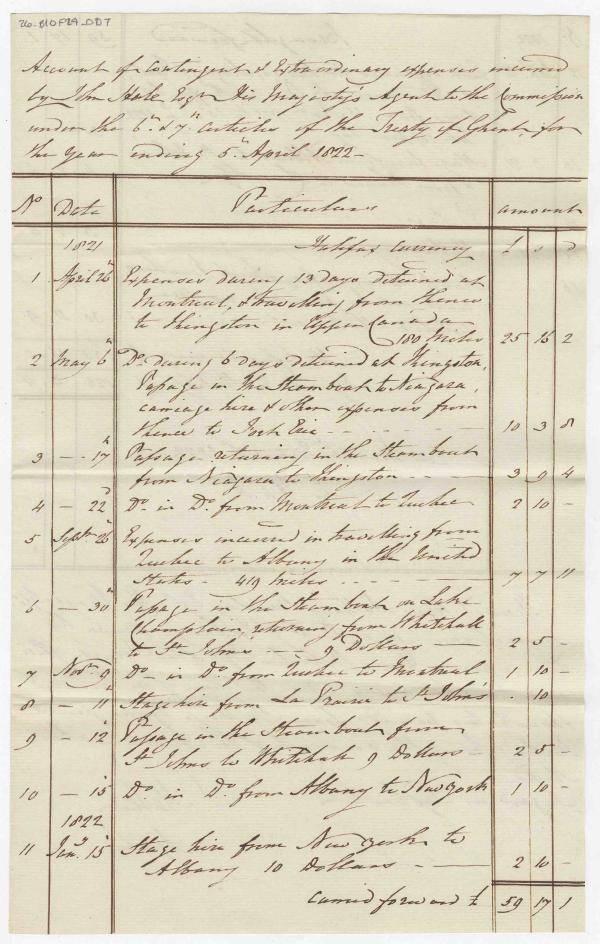 26-B10F29-007
Account of Contingent & Extraordinary expenses incurred
by John Hale Esqr His Majesty's Agent to the Commission
under the 6th & 7th articles of the Treaty of Ghent, for
the Year ending 5th April 1822 -
No Date Particulars amount
1821 Halifax Currency £ s D
1 April 26th Expenses during 13 days detained at
Montreal, & travelling from thence
to Kingston in Upper Canada
180 Miles 25 16 2
2 May 6th Do during 6 days detained at Kingston,
Passage in the Steam boat to Niagara,
carriage hire & other expenses from
thence to Fort Erie - - - 10 3 8
3 - - 17th Passage returning in the Steam boat
from Niagara to Kingston - - - 3 9 4
4 - 22d Do in Do from Montreal to Quebec 2 10 -
5 Septr 26th Expenses incurred in travelling from
Quebec to Albany in the United
States - 419 Miles - - - 7 7 11
6 - 30th Passage in the Steam boat on Lake
Champlain, returning from Whitehall
to St Johns - - - 9 Dollars - 2 5 -
7 Novr 9 Do - in Do from Quebec to Montreal 1 10 -
8 - 11th Stage hire from La Prairie to St John's . 10 -
9 - 12th Passage in the Steam boat from
St Johns to Whitehall 9 Dollars - 2 5 -
10 - 15th Do in Do from Albany to New York 1 10 -
1822
11 Jany 15th Stage hire from New York to
Albany 10 Dollars - - 2 10 -
carried forward £ 59 17 1